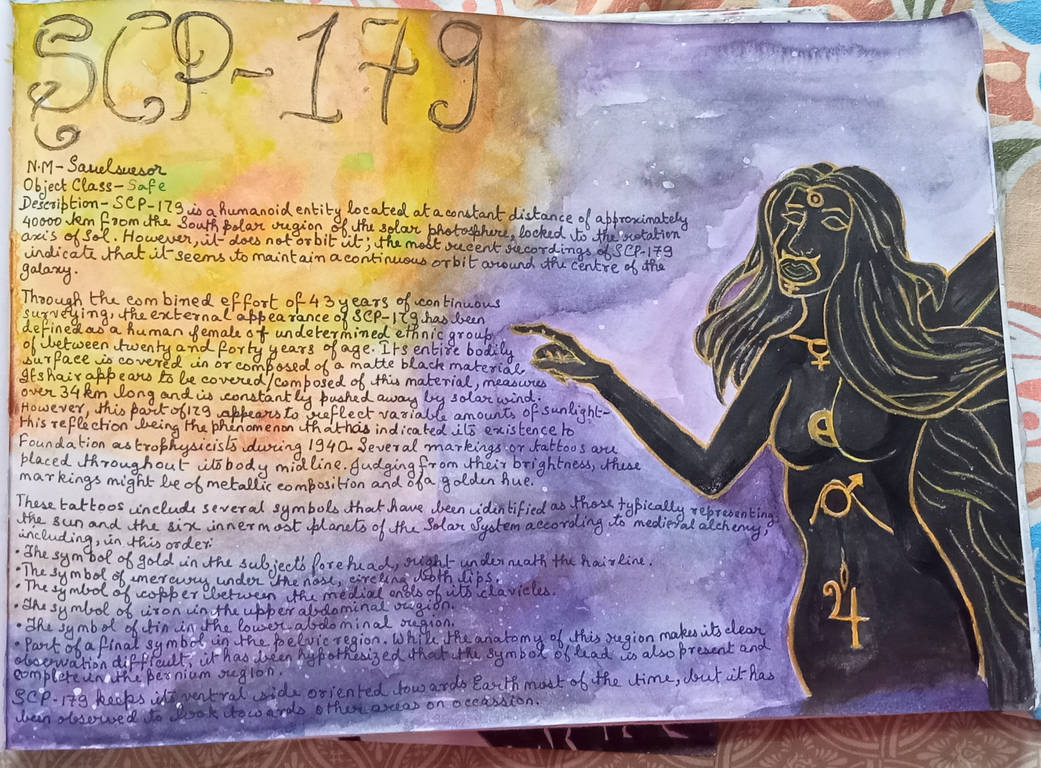 SCP-179
N.M- Sauelsuesor
Object Class- Safe
Description- SCP-179 is a humanoid entity located at a constant distance of approximately
40000 km from the South polar region of the solar photosphere, locked to the rotation
axis of Sol. However, it does not orbit it; the most recent recordings of SCP-179
indicate that it seems to maintain a continuous orbit around the centre of the
galaxy.
Through the combined effort of 43 years of continuous
surveying, the external appearance of SCP-179 has been
defined as a human female of undetermined ethnic group,
of between twenty and forty years of age. Its entire bodily
surface is covered in or composed of a matte black material.
Its hair appears to be covered/composed of this material, measures
over 34 km long and is constantly pushed away by solar wind.
However, this part of 179 appears to reflect variable amounts of sunlight-
this reflection being the phenomenon that has indicated its existence to
Foundation astrophysicists during 1940. Several markings or tattoos are
placed throughout its body midline. Judging from their brightness, these
markings might be of metallic composition and of a golden hue.
These tattoos include several symbols that have been identified as those typically representing
the sun and the six innermost planets of the Solar System according to medieval alchemy,
including, in this order:
• The symbol of gold in the subject's forehead, right underneath the hairline.
• The symbol of mercury under the nose, circling both lips.
• The symbol of copper between the medial ends of its clavicles.
• The symbol of iron in the upper abdominal region.
• The symbol of tin in the lower abdominal region.
• Part of a final symbol in the pelvic region. While the anatomy of this region makes its clear
observation difficult, it has been hypothesized that the symbol of lead is also present and
complete in the pernium region.
SCP-179 keeps its ventral side oriented towards Earth most of the time, but it has
been observed to look towards other areas on occassion.